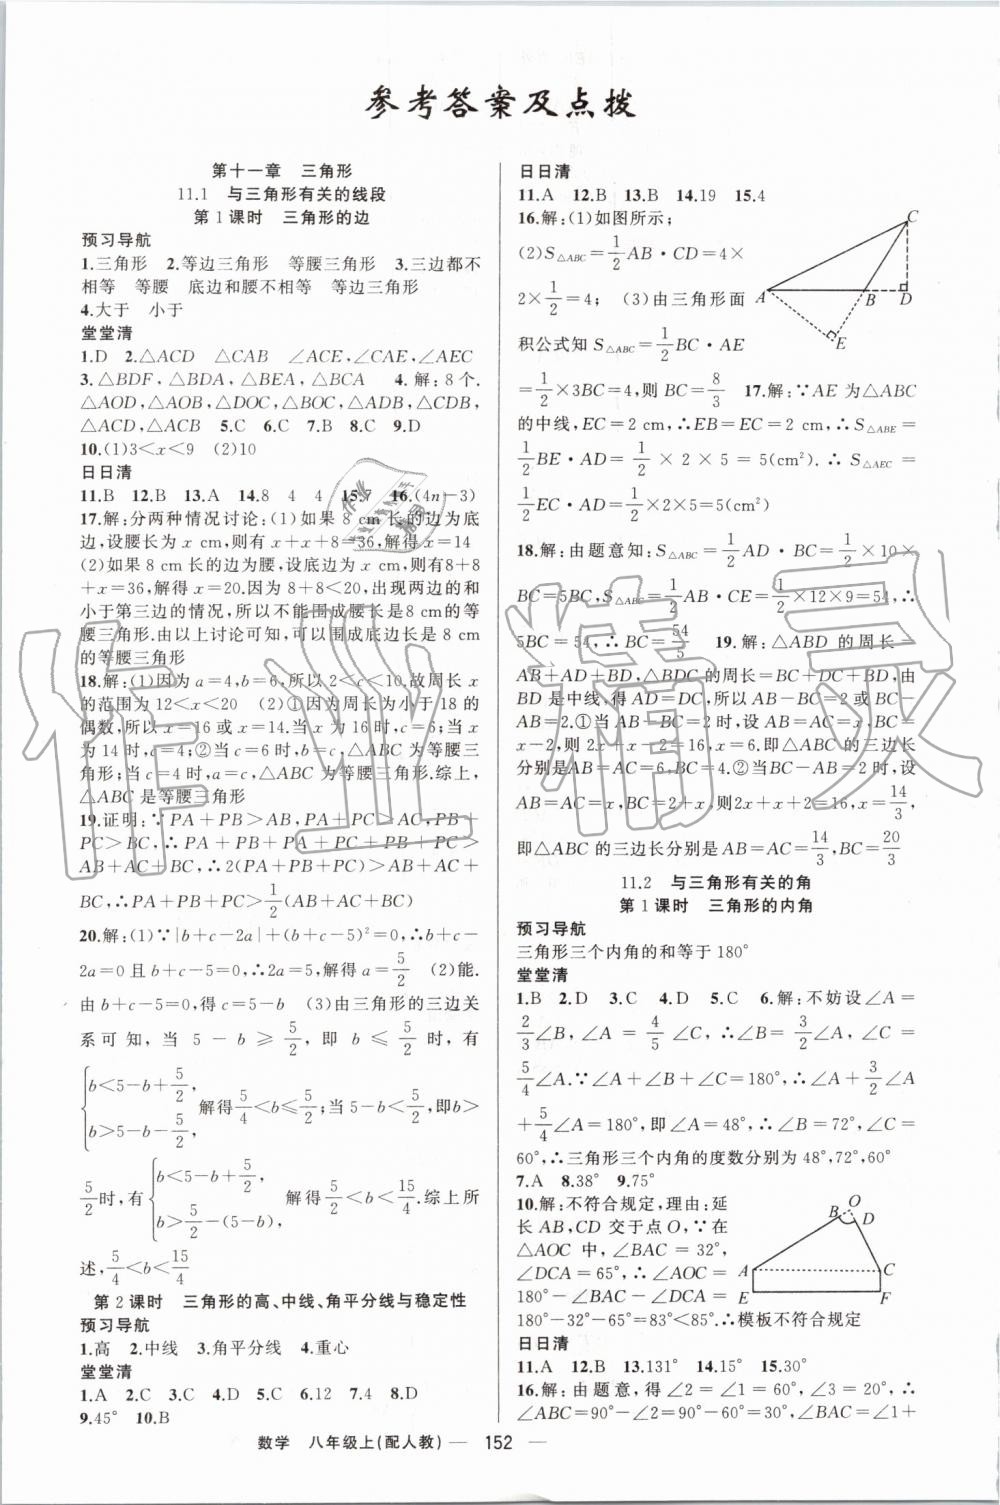 参考答案及点拨
第十一章 三角形
11.1 与三角形有关的线段
第1课时 三角形的边
预习导航
1.三角形 2.等边三角形 等腰三角形 3.三边都不
相等 等腰 底边和腰不相等 等边三角形
4.大于 小于
堂堂清
1.D 2.△ACD △CAB ∠ACE,∠CAE,∠AEC
3.△BDF,△BDA,△BEA,△BCA 4.解:8个.
△AOD,△AOB,△DOC,△BOC,△ADB,△CDB,
△ACD,△ACB 5.C 6.C 7.B 8.C 9.D
10.(1)3<x<9 (2)10
日日清
11.B 12.B 13.A 14.8 4 4 15.7 16.(4n-3)
17.解:分两种情况讨论:(1)如果8 cm长的边为底
边,设腰长为x cm,则有x+x+8=36,解得x=14
(2)如果8 cm长的边为腰,设底边为x cm,则有8+8
+x=36,解得x=20.因为8+8<20,出现两边的和
小于第三边的情况,所以不能围成腰长是8 cm的等
腰三角形.由以上讨论可知,可以围成底边长是8 cm
的等腰三角形
18.解:(1)因为a=4,b=6,所以2<c<10.故周长x
的范围为12<x<20 (2)①因为周长为小于18的
偶数,所以x=16或x=14.当x为16时,c=6;当x
为14时,c=4;②当c=6时,b=c,△ABC为等腰三
角形;当c=4时,a=c,△ABC为等腰三角形.综上,
△ABC是等腰三角形
19.证明:∵PA+PB>AB,PA+PC>AC,PB+
PC>BC,∴PA+PB+PA+PC+PB+PC>
AB+AC+BC,∴2(PA+PB+PC)>AB+AC+
BC,∴PA+PB+PC>1/2(AB+AC+BC)
20.解:(1)∵|b+c-2a|+(b+c-5)²=0,∴b+c-
2a=0且b+c-5=0,∴2a=5,解得a=5/2 (2)能.
由b+c-5=0,得c=5-b (3)由三角形的三边关
系可知,当5-b≥5/2,即b≤5/2时,有
{b<5-b+5/2, b>5-b-5/2, 解得5/4<b≤5/2;当5-b<5/2,即b>
5/2时,有{b<5-b+5/2 b>5/2-(5-b), 解得5/2<b<15/4.综上所
述,5/4<b<15/4
第2课时 三角形的高、中线、角平分线与稳定性
预习导航
1.高 2.中线 3.角平分线 4.重心
堂堂清
1.A 2.C 3.C 4.D 5.C 6.12 7.4 8.D
9.45° 10.B
日日清
11.A 12.B 13.B 14.19 15.4
16.解:(1)如图所示;
(2)S△ABC=1/2AB·CD=4×
2×1/2=4; (3)由三角形面
积公式知S△ABC=1/2BC·AE
=1/2×3BC=4,则BC=8/3 17.解:∵AE为△ABC
的中线,EC=2 cm,∴EB=EC=2 cm,∴S△ABE=
1/2BE·AD=1/2×2×5=5(cm²).∴S△AEC=
1/2EC·AD=1/2×2×5=5(cm²)
18.解:由题意知:S△ABC=1/2AD·BC=1/2×10×
BC=5BC,S△ABC=1/2AB·CE=1/2×12×9=54,∴
5BC=54,∴BC=54/5 19.解:△ABD的周长=
AB+AD+BD,△BDC的周长=BC+DC+BD,由
BD是中线,得AD=DC,所以AB-BC=2或BC-
AB=2.①当AB-BC=2时,设AB=AC=x,BC=
x-2,则2x+x-2=16,x=6.即△ABC的三边长
分别是AB=AC=6,BC=4.②当BC-AB=2时,设
AB=AC=x,BC=2+x,则2x+x+2=16,x=14/3,
即△ABC的三边长分别是AB=AC=14/3,BC=20/3
11.2 与三角形有关的角
第1课时 三角形的内角
预习导航
三角形三个内角的和等于180°
堂堂清
1.B 2.D 3.C 4.D 5.C 6.解:不妨设∠A=
2/3∠B,∠A=4/5∠C,∴∠B=3/2∠A,∠C=
5/4∠A.∵∠A+∠B+∠C=180°,∴∠A+3/2∠A
+5/4∠A=180°,即∠A=48°,∴∠B=72°,∠C=
60°,∴三角形三个内角的度数分别为48°,72°,60°
7.A 8.38° 9.75°
10.解:不符合规定,理由:延
长AB,CD交于点O,∵在
△AOC中,∠BAC=32°,
∠DCA=65°,∴∠AOC=
180°-∠BAC-∠DCA=
180°-32°-65°=83°<85°.∴模板不符合规定
日日清
11.A 12.B 13.131° 14.15° 15.30°
16.解:由题意,得∠2=∠1=60°,∠3=20°,∴
∠ABC=90°-∠2=90°-60°=30°,∠BAC=∠1+
A B C D E
A B C D E F O
作业精灵
数学 八年级上(配人教) — 152 —